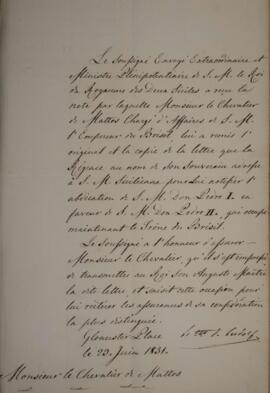 Le Soussigné Envoyé Extraordinaire et
Ministre Plénipotentiaire de S. M. le Roi
du Royaume des Deux Siciles a reçu la
note par laquelle Monsieur le Chevalier
de Mattos Chargé d'Affaires de S. M.
l'Empereur du Brésil lui a remis l'
original et la copie de la lettre que la
Régence au nom de Son Souverain adresse
à S. M. Sicilienne pour lui notifier l'
abdication de S. M. Don Pedro I. en
faveur de S. M. Don Pedro II. qui occupe
maintenant le Trône du Brésil.
Le Soussigné a l'honneur d'assurer
Monsieur le Chevalier, qu'il s'est empressé
de transmettre au Roi Son Auguste Maître
la dite lettre, et saisit cette occasion pour
lui réitérer les assurances de sa considération
la plus distinguée.
Gloucester Place
le 23 Juin 1831.
Monsieur le Chevalier de Mattos